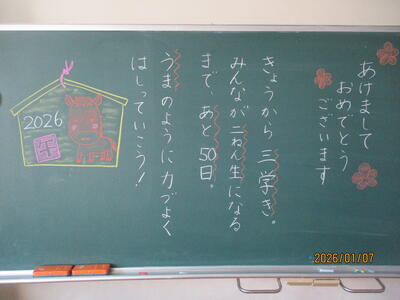 あけまして
おめでとう
ございます
きょうから三学き。
みんなが二ねん生になる
まで、あと50日。
うまのように力づよく
はしっていこう!
2026
午
2026/01/07